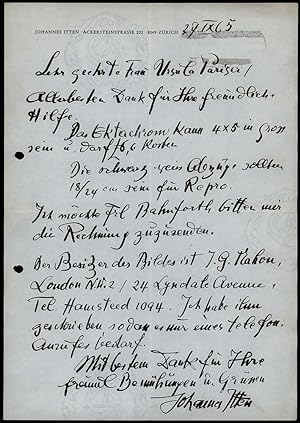 JOHANNES ITTEN ACKERSTEINSTRASSE 202 8049 ZÜRICH
29 IX 65
Sehr geehrte Frau Ursula Pariser/
Allerbesten Dank für Ihre freundliche
Hilfe.
Das Ektachrom kann 4x5 in gross
sein u. darf £6 kosten
Die schwarz-weiss Abzüge sollten
18/24 cm sein für Repro.
Ich möchte Frl Bahnforth bitten mir
die Rechnung zuzusenden.
Der Besitzer des Bildes ist J.G.
London N.W.2 / 24 Lyndale Avenue,
Tel Hamsteed 1094. Ich habe ihm
geschrieben sodass es nur eines Telefon-
Anrufes bedarf.
Mit bestem Dank für Ihre
freundl Bemühungen u. Grüssen
Johannes Itten